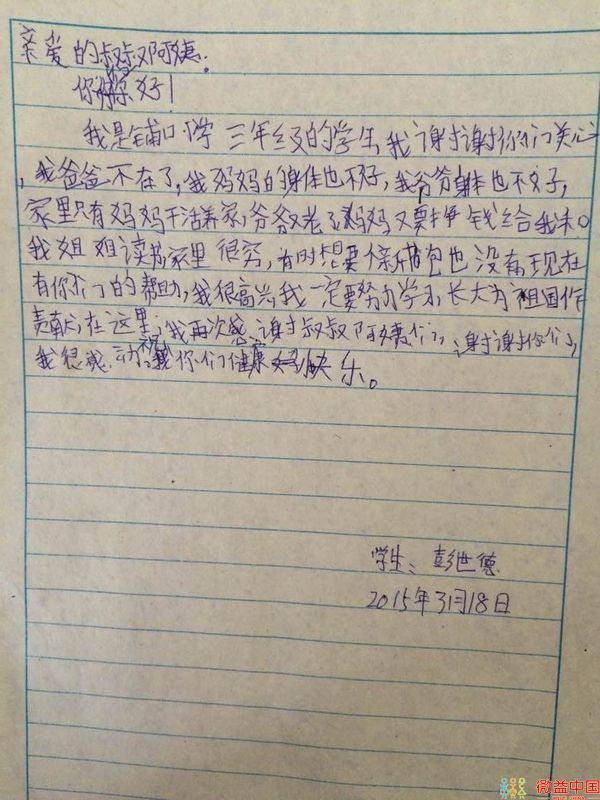 亲爱的叔叔阿姨.
你们好!
我是铺口小学三年级的学生,我谢谢你们关心
,我爸爸不在了,我妈妈的身体也不好,我爷爷身体也不好,
家里只有妈妈干活养家,爷爷又老了妈妈又要挣钱给我和
我姐姐读书家里很穷,有时想要个新书包也没有,现在
有你们的帮助,我很高兴我一定要努力学习,长大为祖国作
贡献,在这里,我再次感谢叔叔阿姨们,谢谢你们,
我很感动,祝你们健康快乐。
学生:彭世德
2015年3月18日
微益中国